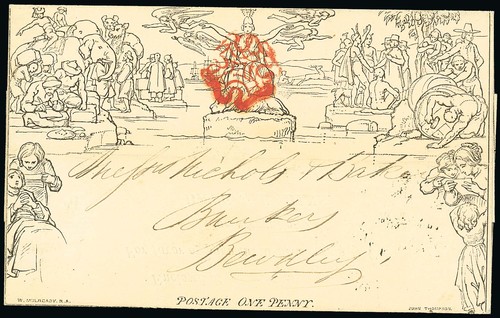 Messrs Nichols &
Bankers
Bewdley
POSTAGE ONE PENNY.
W. MULREADY. R.A.
JOHN THOMPSON